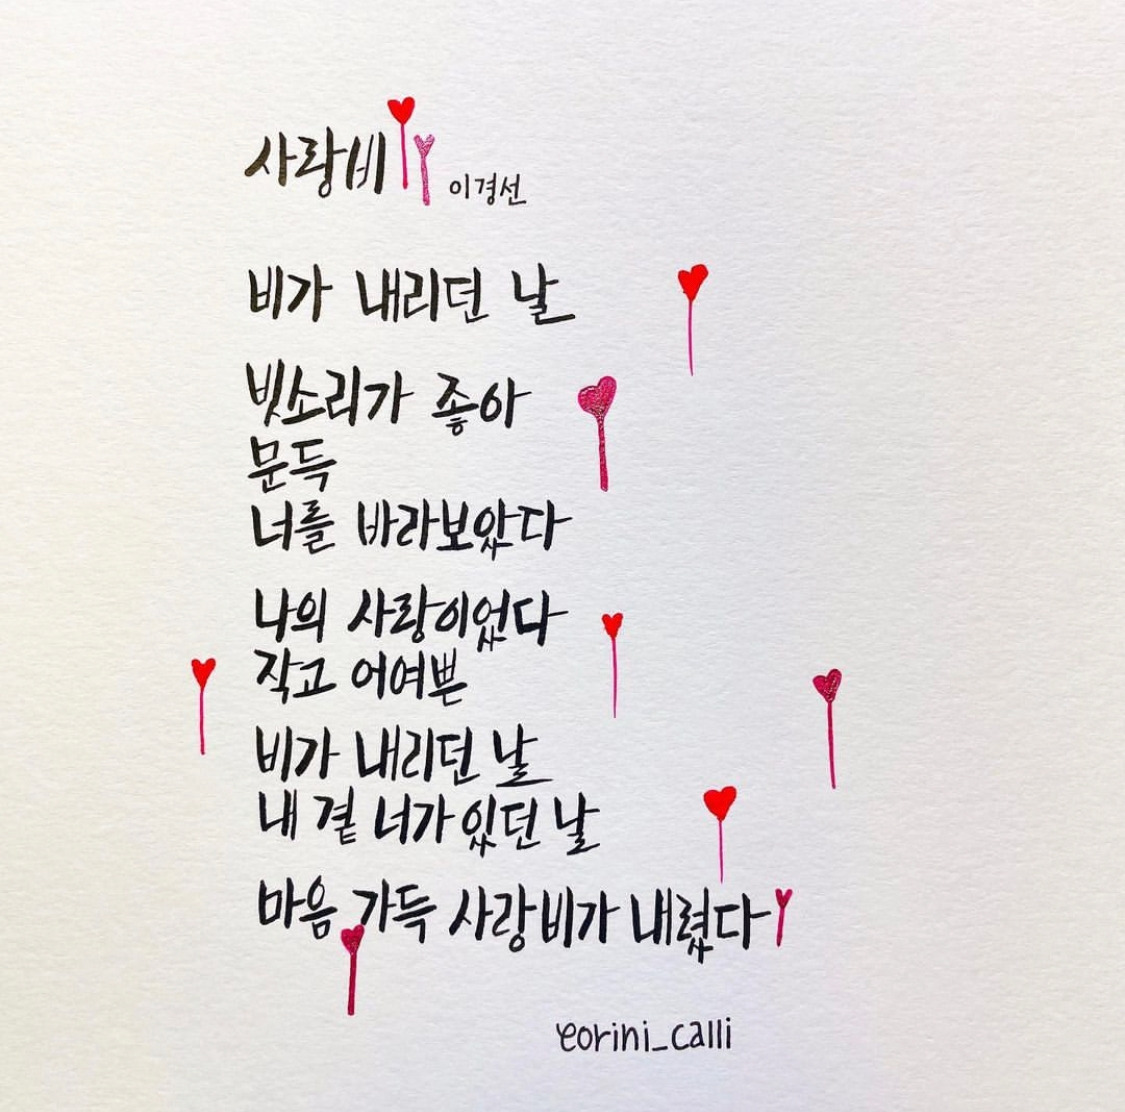 사랑비 이경선
비가 내리던 날
빗소리가 좋아
문득
너를 바라보았다
나의 사랑이었다
작고 어여쁜
비가 내리던 날
내 곁 너가 있던 날
마음 가득 사랑비가 내렸다
eorini_calli